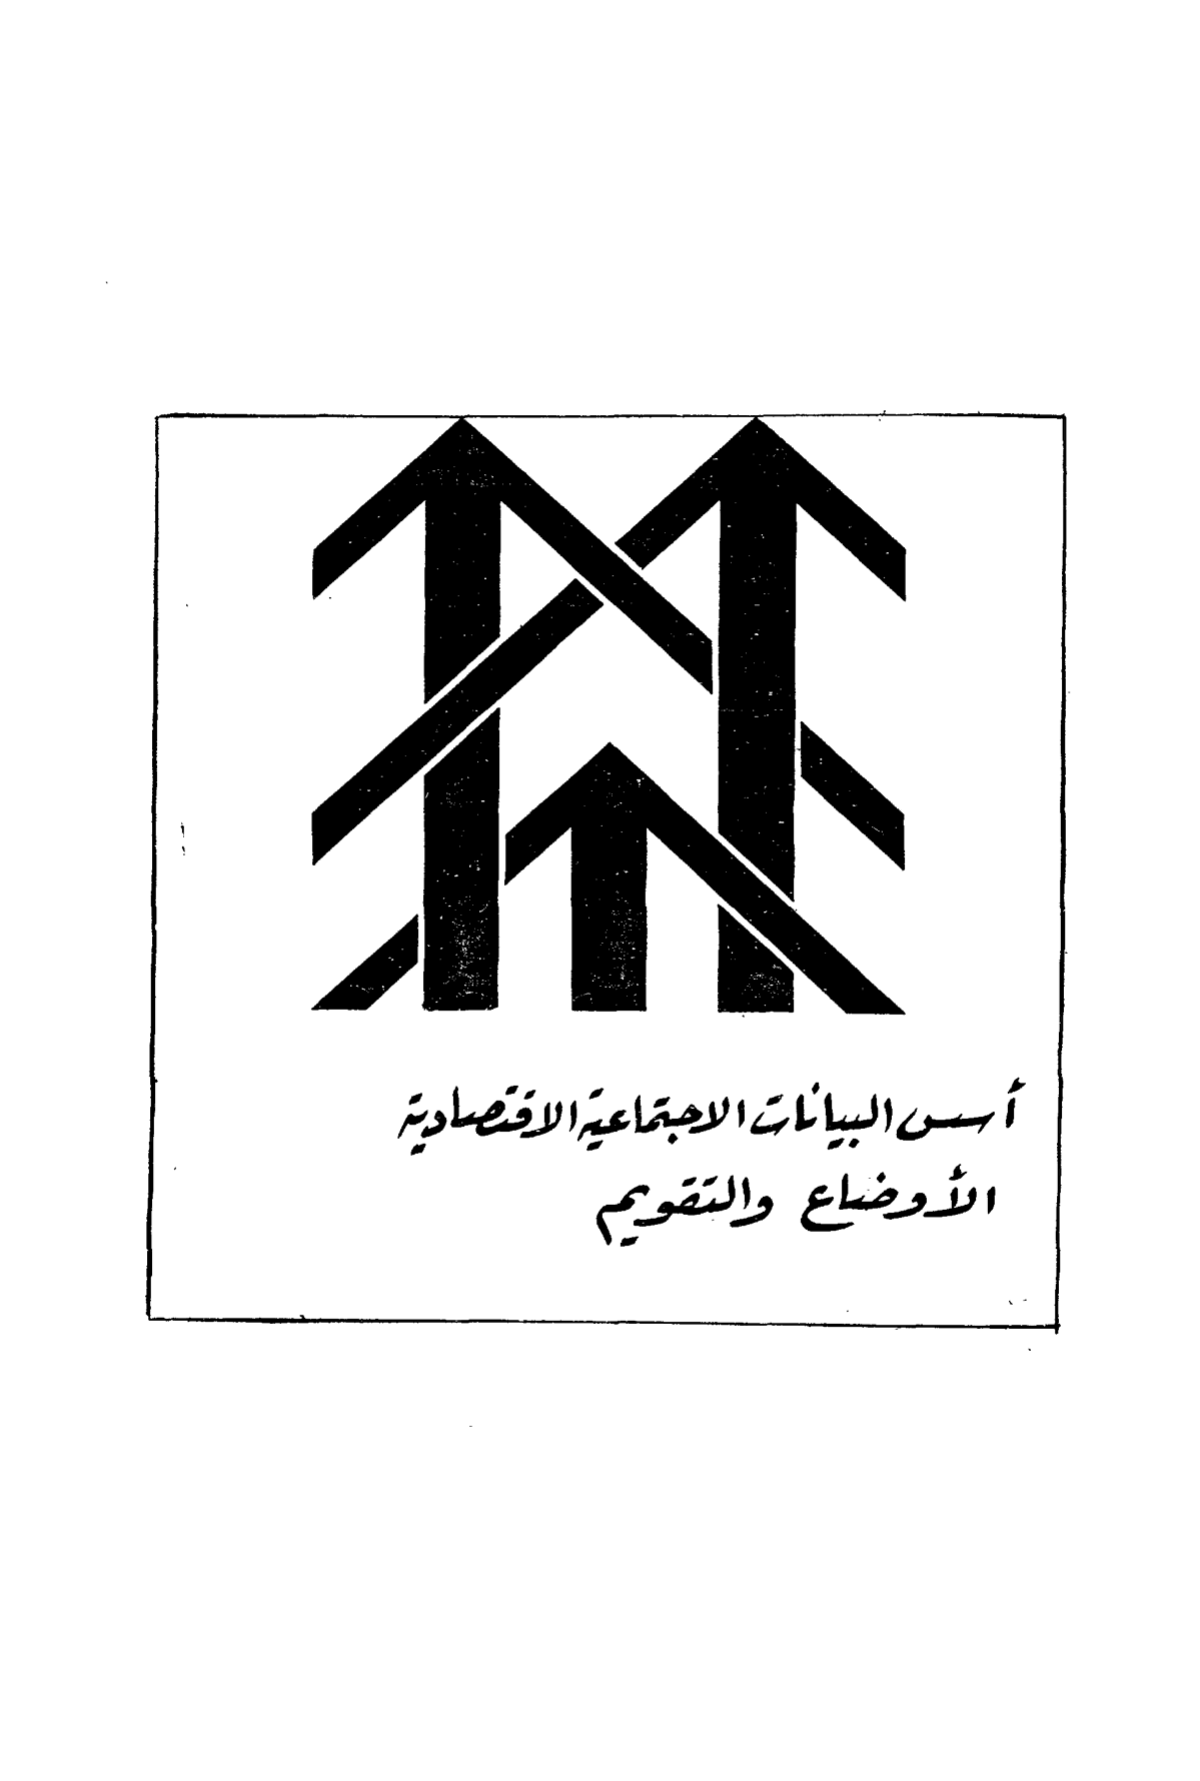 أسس البيانات الاجتماعية الاقتصادية
الأوضاع والتقويم